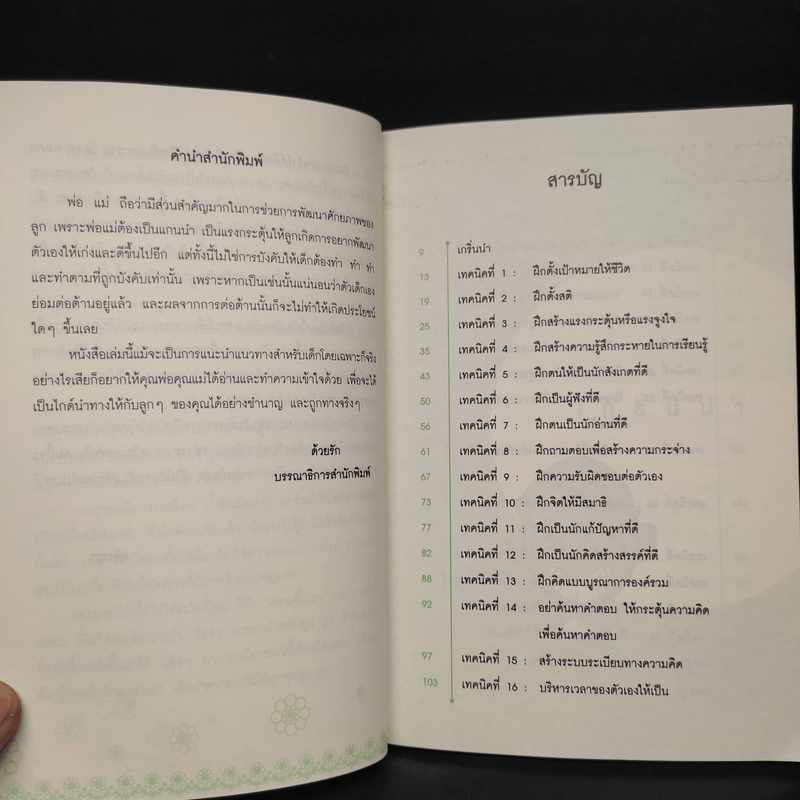 คำนำสำนักพิมพ์
พ่อ แม่ ถือว่ามีส่วนสำคัญมากในการช่วยการพัฒนาศักยภาพของ
ลูก เพราะพ่อแม่ต้องเป็นแกนนำ เป็นแรงกระตุ้นให้ลูกเกิดการอยากพัฒนา
ตัวเองให้เก่งและดีขึ้นไปอีก แต่ทั้งนี้ไม่ใช่การบังคับให้เด็กต้องทำ ทำ ทำ
และทำตามที่ถูกบังคับเท่านั้น เพราะหากเป็นเช่นนั้นแน่นอนว่าตัวเด็กเอง
ย่อมต่อต้านอยู่แล้ว และผลจากการต่อต้านนั้นก็จะไม่ทำให้เกิดประโยชน์
ใดๆ ขึ้นเลย
หนังสือเล่มนี้แม้จะเป็นการแนะนำแนวทางสำหรับเด็กโดยเฉพาะก็จริง
อย่างไรเสียก็อยากให้คุณพ่อคุณแม่ได้อ่านและทำความเข้าใจด้วย เพื่อจะได้
เป็นไกด์นำทางให้กับลูกๆ ของคุณได้อย่างชำนาญ และถูกทางจริงๆ
ด้วยรัก
บรรณาธิการสำนักพิมพ์
สารบัญ
9 เกริ่นนำ
13 เทคนิคที่ 1 : ฝึกตั้งเป้าหมายให้ชีวิต
19 เทคนิคที่ 2 : ฝึกตั้งสติ
25 เทคนิคที่ 3 : ฝึกสร้างแรงกระตุ้นหรือแรงจูงใจ
35 เทคนิคที่ 4 : ฝึกสร้างความรู้สึกกระหายในการเรียนรู้
43 เทคนิคที่ 5 : ฝึกตนให้เป็นนักสังเกตที่ดี
50 เทคนิคที่ 6 : ฝึกเป็นผู้ฟังที่ดี
56 เทคนิคที่ 7 : ฝึกตนเป็นนักอ่านที่ดี
61 เทคนิคที่ 8 : ฝึกถามตอบเพื่อสร้างความกระจ่าง
67 เทคนิคที่ 9 : ฝึกความรับผิดชอบต่อตัวเอง
73 เทคนิคที่ 10 : ฝึกจิตให้มีสมาธิ
77 เทคนิคที่ 11 : ฝึกเป็นนักแก้ปัญหาที่ดี
82 เทคนิคที่ 12 : ฝึกเป็นนักคิดสร้างสรรค์ที่ดี
88 เทคนิคที่ 13 : ฝึกคิดแบบบูรณาการองค์รวม
92 เทคนิคที่ 14 : อย่าค้นหาคำตอบ ให้กระตุ้นความคิด
เพื่อค้นหาคำตอบ
97 เทคนิคที่ 15 : สร้างระบบระเบียบทางความคิด
103 เทคนิคที่ 16 : บริหารเวลาของตัวเองให้เป็น